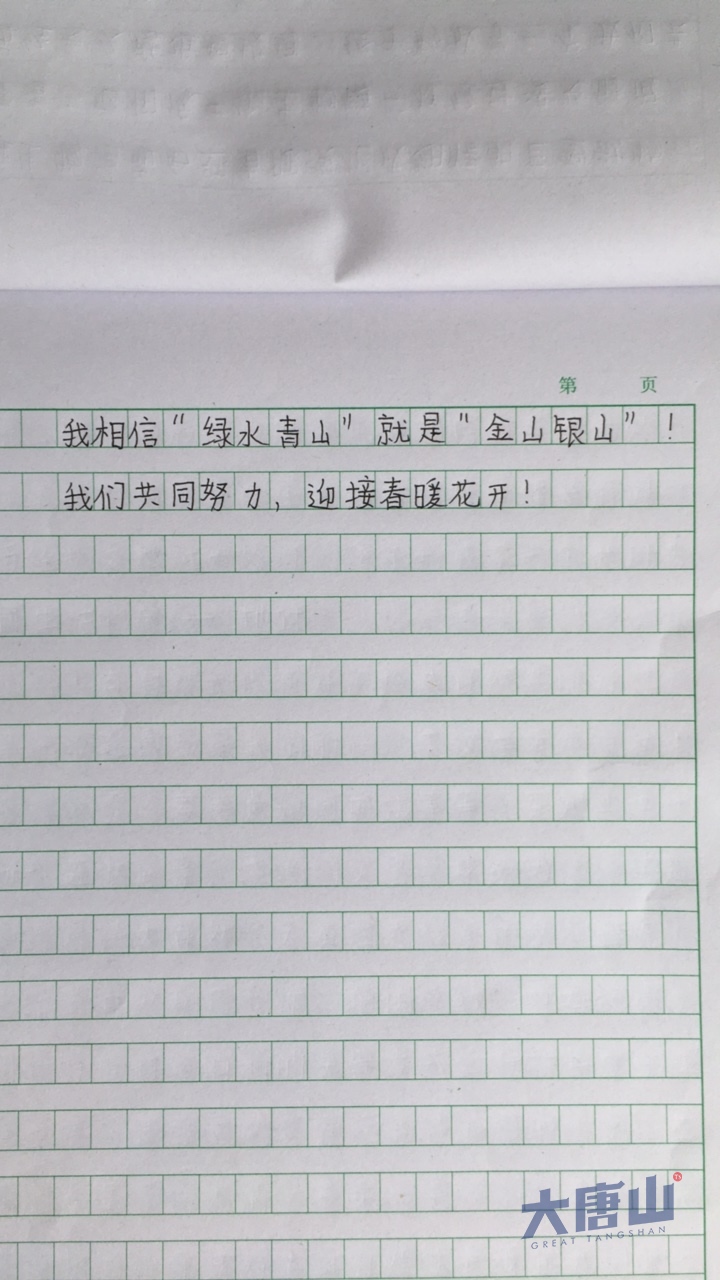 第 页
我相信“绿水青山”就是“金山银山”!
我们共同努力,迎接春暖花开!
大唐山
TS
GREAT TANGSHAN